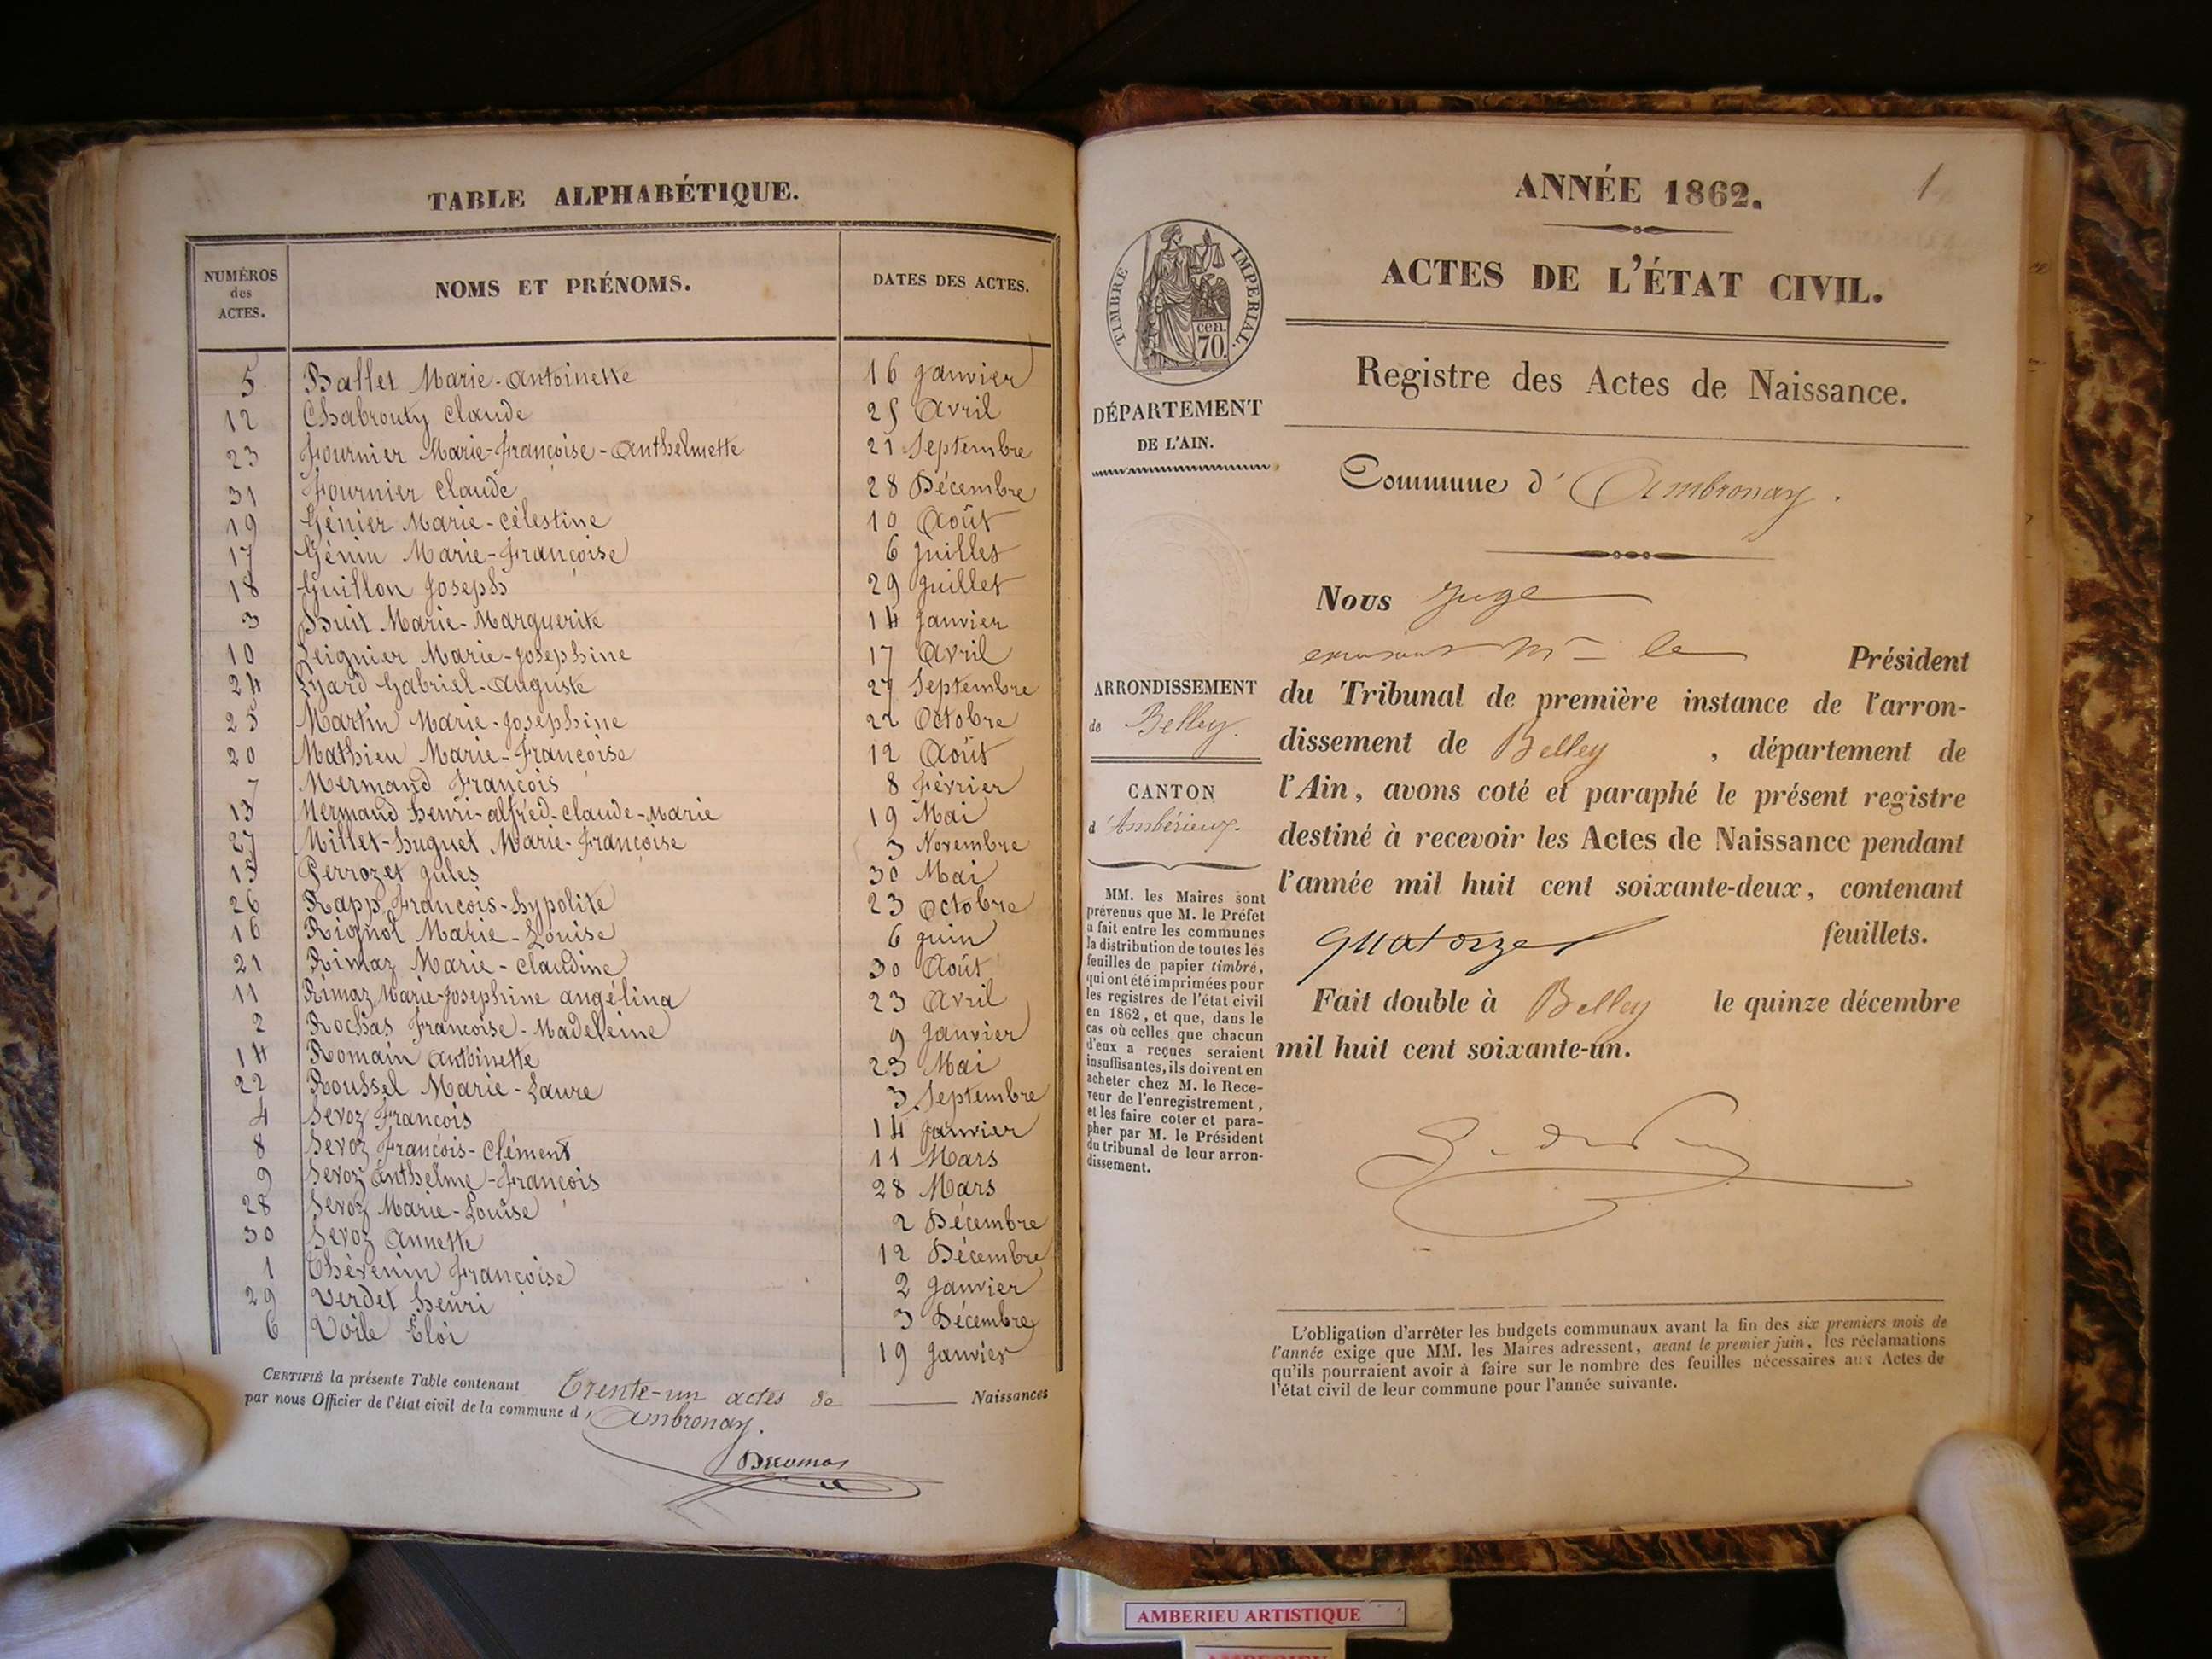 TABLE ALPHABÉTIQUE.
NUMÉROS des ACTES. NOMS ET PRÉNOMS. DATES DES ACTES.
5 Ballet Marie-Antoinette 16 Janvier
12 Chabrouty Claude 25 Avril
23 Fournier Marie-Françoise-Anthelmette 21 Septembre
31 Fournier Claude 28 Décembre
19 Génier Marie-Célestine 10 Août
17 Génin Marie-Françoise 6 Juillet
18 Guillon Joseph 29 Juillet
3 Huit Marie-Marguerite 14 Janvier
10 Leignier Marie-Josephine 17 Avril
24 Lyard Gabriel-Auguste 27 Septembre
25 Martin Marie-Josephine 22 Octobre
20 Mathieu Marie-Françoise 12 Août
7 Mermand François 8 Février
13 Mermand Henri-alfred-Claude-Marie 19 Mai
27 Millet-huguet Marie-Françoise 3 Novembre
15 Perrozet Jules 30 Mai
26 Rapp François-hypolite 23 Octobre
16 Rignol Marie-Louise 6 Juin
21 Rimaz Marie-Claudine 30 Août
11 Rimaz Marie-Josephine angélina 23 Avril
2 Rochas Françoise-Madeleine 9 Janvier
14 Romain Antoinette 23 Mai
22 Roussel Marie-Laure 3 Septembre
4 Sevoz François 14 Janvier
8 Sevoz François-Clément 11 Mars
9 Sevoz Anthelme-François 28 Mars
28 Sevoz Marie-Louise 2 Décembre
30 Sevoz Annette 12 Décembre
1 Thévenin Françoise 2 Janvier
29 Verdet henri 3 Décembre
6 Voile Éloi 19 Janvier
CERTIFIÉ la présente Table contenant Trente-un actes de Naissances
par nous Officier de l'état civil de la commune d'Ambronay.
1
ANNÉE 1862.
ACTES DE L'ÉTAT CIVIL.
Registre des Actes de Naissance.
TIMBRE IMPERIAL.
cen.
70.
DÉPARTEMENT
DE L'AIN.
Commune d'Ambronay.
Nous Juge
Mr le Président
du Tribunal de première instance de l'arron-
dissement de Belley, département de
l'Ain, avons coté et paraphé le présent registre
destiné à recevoir les Actes de Naissance pendant
l'année mil huit cent soixante-deux, contenant
quatorze feuillets.
Fait double à Belley le quinze décembre
mil huit cent soixante-un.
ARRONDISSEMENT
de Belley.
CANTON
d'Ambérieux.
MM. les Maires sont
prévenus que M. le Préfet
a fait entre les communes
la distribution de toutes les
feuilles de papier timbré,
qui ont été imprimées pour
les registres de l'état civil
en 1862, et que, dans le
cas où celles que chacun
d'eux a reçues seraient
insuffisantes, ils doivent en
acheter chez M. le Rece-
veur de l'enregistrement,
et les faire coter et para-
pher par M. le Président
du tribunal de leur arron-
dissement.
L'obligation d'arrêter les budgets communaux avant la fin des six premiers mois de
l'année exige que MM. les Maires adressent, avant le premier juin, les réclamations
qu'ils pourraient avoir à faire sur le nombre des feuilles nécessaires aux Actes de
l'état civil de leur commune pour l'année suivante.
AMBERIEU ARTISTIQUE